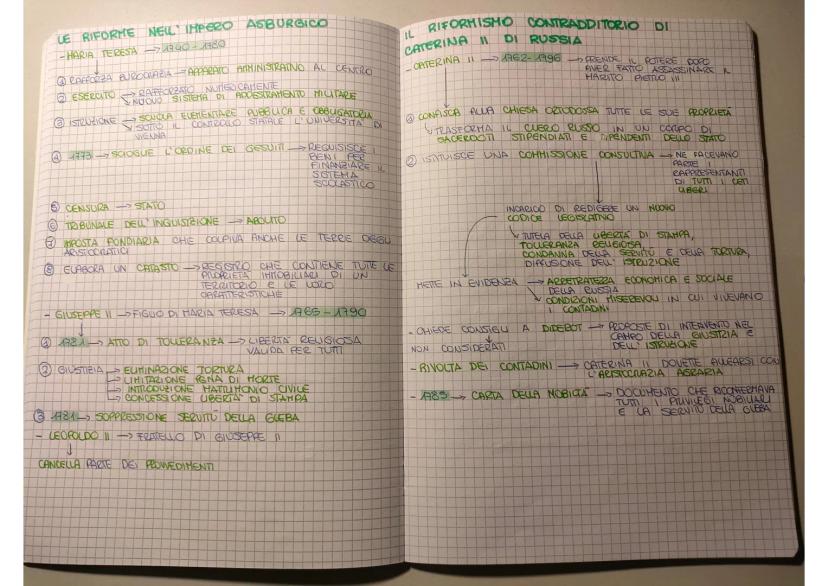 LE RIFORME NELL'IMPERO ASBURGICO
- MARIA TERESA → 1740 - 1780
① RAFFORZA BUROCRAZIA → APPARATO AMMINISTRATIVO AL CENTRO
② ESERCITO → RAFFORZATO NUMERICAMENTE
→ NUOVO SISTEMA DI ADDESTRAMENTO MILITARE
③ ISTRUZIONE → SCUOLA ELEMENTARE PUBBLICA E OBBLIGATORIA
→ SOTTO IL CONTROLLO STATALE L'UNIVERSITÀ DI
VIENNA
④ 1773 → SCIOGLIE L'ORDINE DEI GESUITI → REQUISISCE I
BENI PER
FINANZIARE IL
SISTEMA
SCOLASTICO
⑤ CENSURA → STATO
⑥ TRIBUNALE DELL'INQUISIZIONE → ABOLITO
⑦ IMPOSTA FONDIARIA CHE COLPIVA ANCHE LE TERRE DEGLI
ARISTOCRATICI
⑧ ELABORA UN CATASTO → REGISTRO CHE CONTIENE TUTTE LE
PROPRIETÀ IMMOBILIARI DI UN
TERRITORIO E LE LORO
CARATTERISTICHE
- GIUSEPPE II → FIGLIO DI MARIA TERESA → 1765 - 1790
① 1781 → ATTO DI TOLLERANZA → LIBERTÀ RELIGIOSA
VALIDA PER TUTTI
② GIUSTIZIA → ELIMINAZIONE TORTURA
→ LIMITAZIONE PENA DI MORTE
→ INTRODUZIONE MATRIMONIO CIVILE
→ CONCESSIONE LIBERTÀ DI STAMPA
③ 1781 → SOPPRESSIONE SERVITÙ DELLA GLEBA
- LEOPOLDO II → FRATELLO DI GIUSEPPE II
↓
CANCELLA PARTE DEI PROVVEDIMENTI
IL RIFORMISMO CONTRADDITORIO DI
CATERINA II DI RUSSIA
- CATERINA II → 1762 - 1796 → PRENDE IL POTERE DOPO
AVER FATTO ASSASSINARE IL
MARITO PIETRO III
① CONFISCA ALLA CHIESA ORTODOSSA TUTTE LE SUE PROPRIETÀ
↘ TRASFORMA IL CLERO RUSSO IN UN CORPO DI
SACERDOTI STIPENDIATI E DIPENDENTI DELLO STATO
② ISTITUISCE UNA COMMISSIONE CONSULTIVA → NE FACEVANO
PARTE I
RAPPRESENTANTI
DI TUTTI I CETI
LIBERI
INCARICO DI REDIGERE UN NUOVO
CODICE LEGISLATIVO
↘ TUTELA DELLA LIBERTÀ DI STAMPA,
TOLLERANZA RELIGIOSA,
CONDANNA DELLA SERVITÙ E DELLA TORTURA,
DIFFUSIONE DELL'ISTRUZIONE
METTE IN EVIDENZA → ARRETRATEZZA ECONOMICA E SOCIALE
DELLA RUSSIA
→ CONDIZIONI MISEREVOLI IN CUI VIVEVANO
I CONTADINI
- CHIEDE CONSIGLI A DIDEROT → PROPOSTE DI INTERVENTO NEL
CAMPO DELLA GIUSTIZIA E
DELL'ISTRUZIONE
NON CONSIDERATI
- RIVOLTA DEI CONTADINI → CATERINA II DOVETTE ALLEARSI CON
L'ARISTOCRAZIA AGRARIA
- 1785 → CARTA DELLA NOBILTÀ → DOCUMENTO CHE RICONFERMAVA
TUTTI I PRIVILEGI NOBILIARI
E LA SERVITÙ DELLA GLEBA